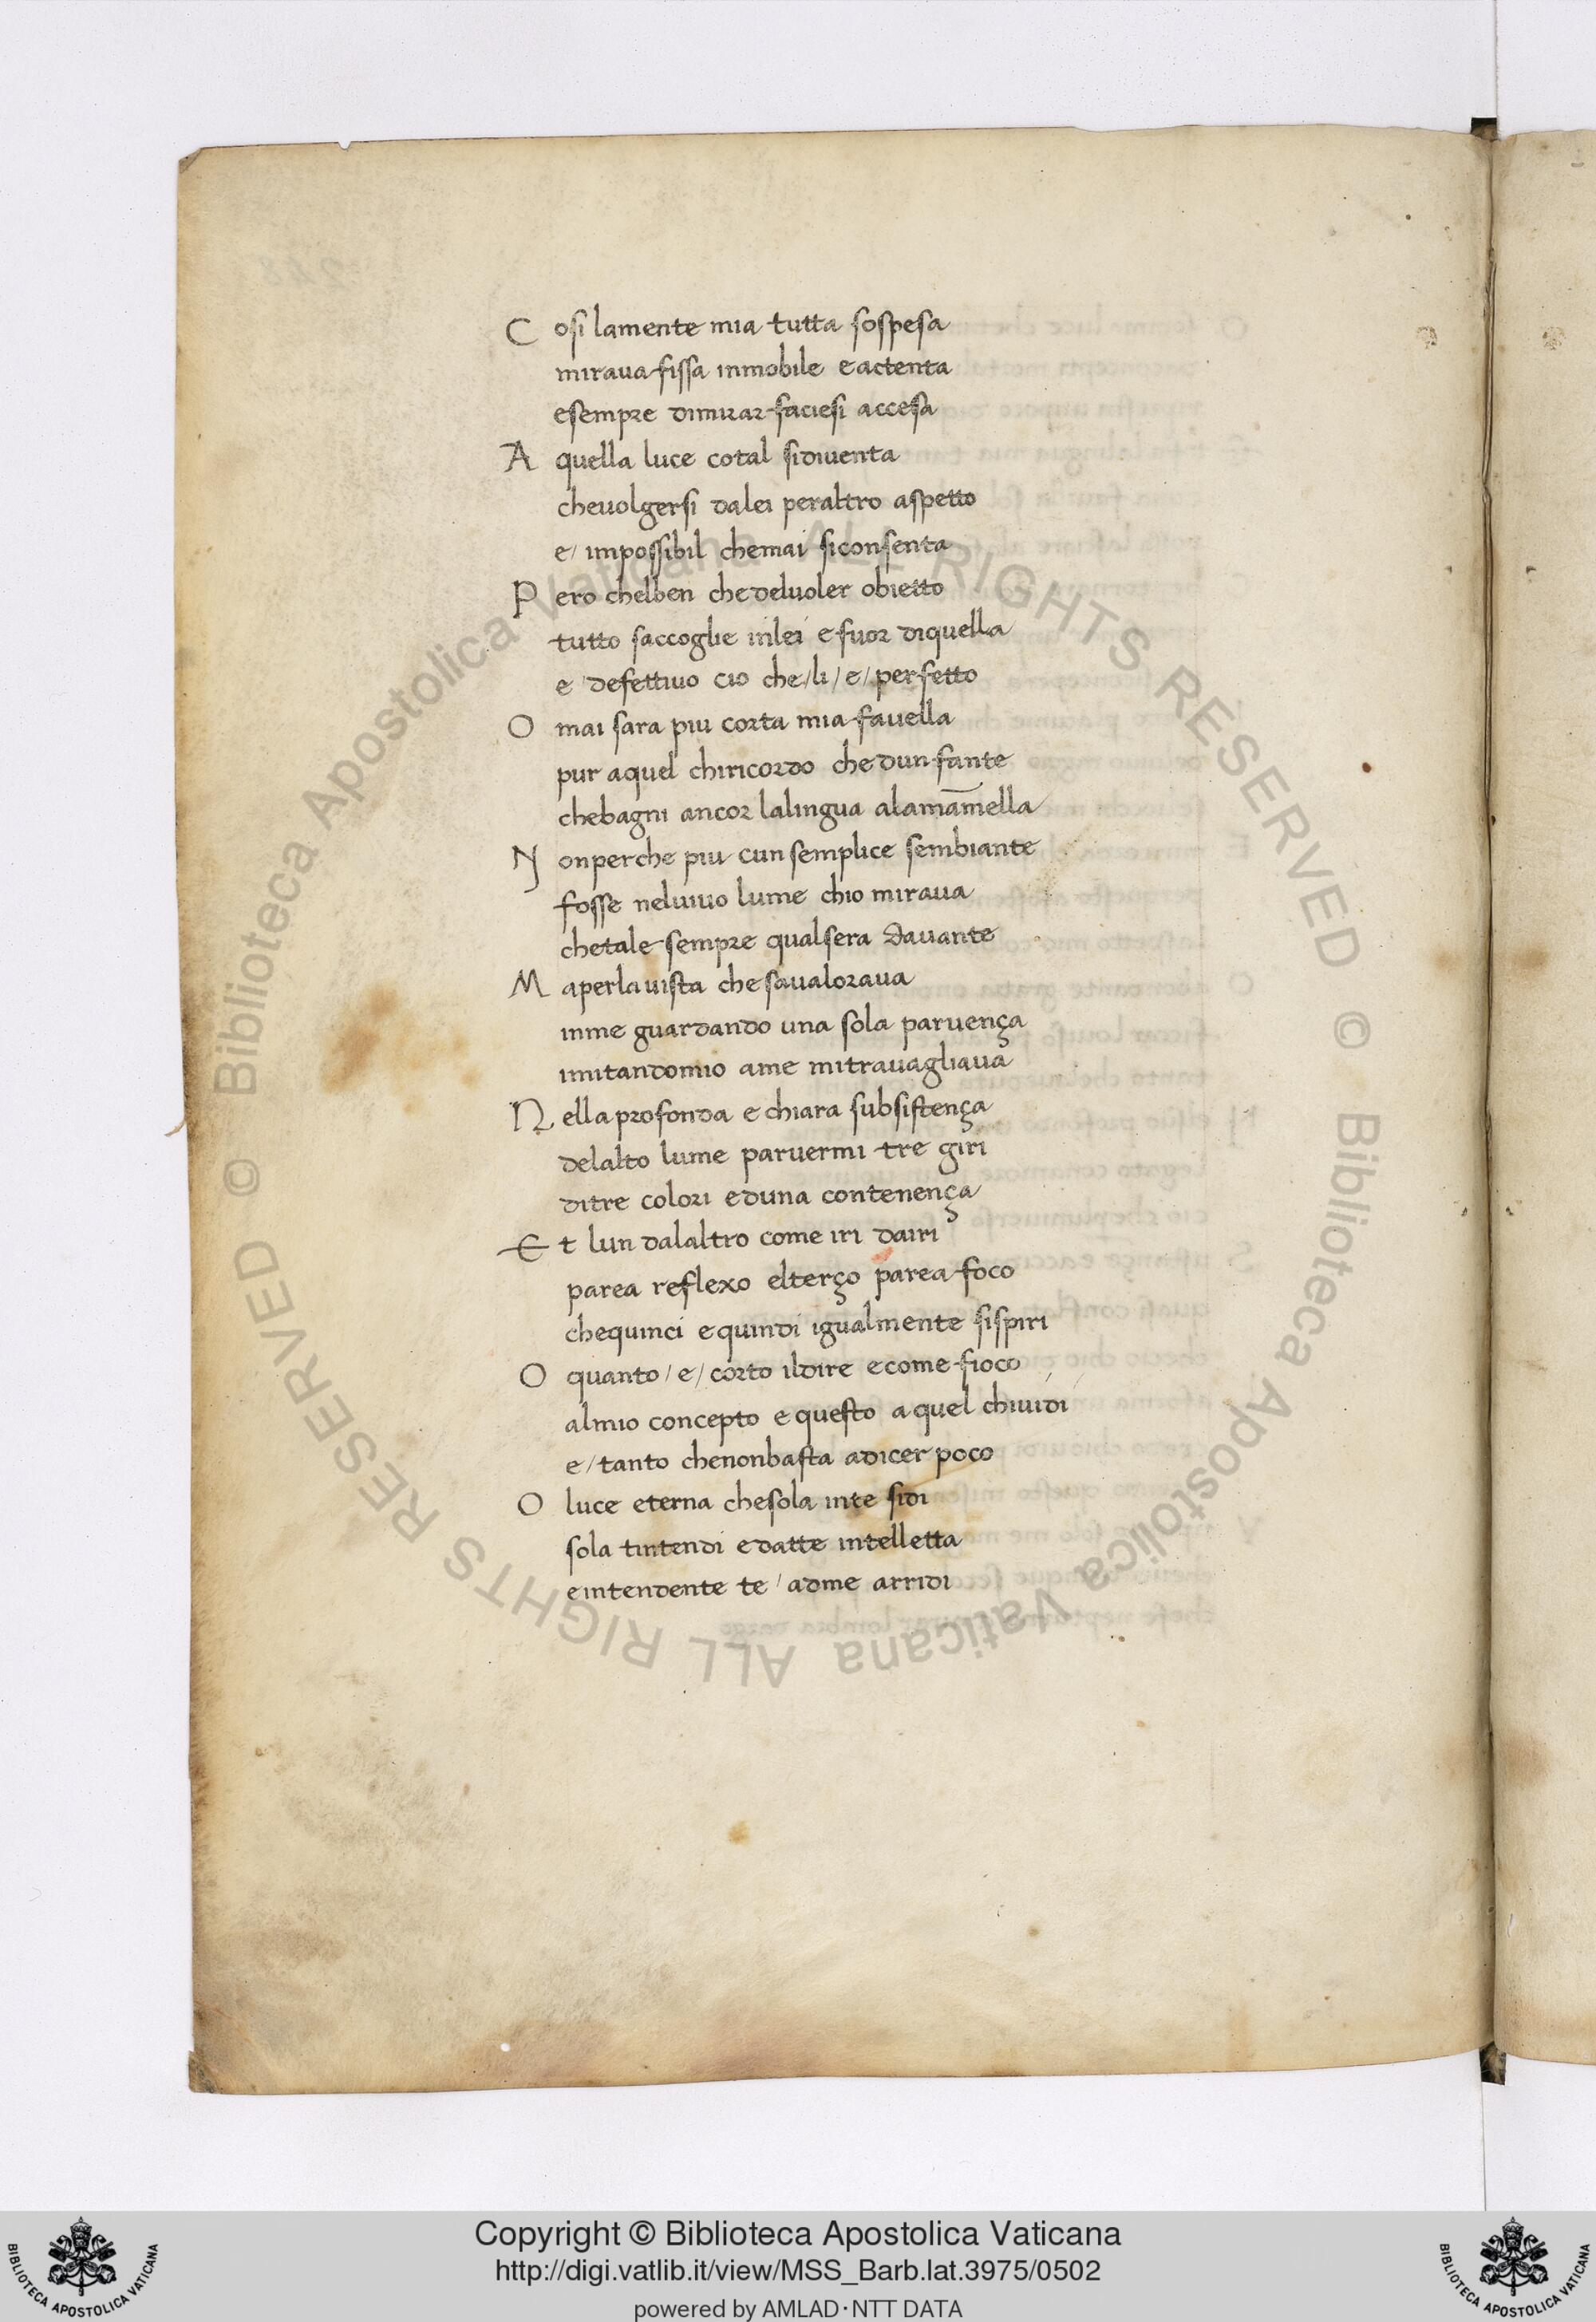 C osi lamente mia tutta sospesa
miraua fissa inmobile e actenta
esempre dimirar faciesi accesa
A quella luce cotal sidiuenta
cheuolgersi dalei peraltro aspetto
e/ impossibil chemai siconsenta
P ero chelben chedeluoler obietto
tutto saccoglie inlei e fuor diquella
e/ defettiuo cio che/li/e/perfetto
O mai sara piu corta mia fauella
pur aquel chiricordo chedun fante
chebagni ancor lalingua alamām̄ella
N onperche piu cun semplice sembiante
fosse neluiuo lume chio miraua
chetale sempre qualsera dauante
M aperlauista chesaualoraua
inme guardando una sola paruença
imitandomio ame mitrauagliaua
N ella profonda e chiara subsistença
delalto lume paruermi tre giri
ditre colori eduna contenença
E t lun dalaltro come iri dairi
parea reflexo elterço parea foco
chequinci equindi igualmente sispiri
O quanto/e/corto ildire ecome fioco
almio concepto equesto aquel chiuidi
e/tanto chenonbasta adicer poco
O luce eterna chesola inte sidi
sola tintendi edatte intelletta
eintendente te/ adme arridi
© Biblioteca Apostolica Vaticana ALL RIGHTS RESERVED © Biblioteca Apostolica Vaticana ALL RIGHTS RESERVED
Copyright © Biblioteca Apostolica Vaticana
http://digi.vatlib.it/view/MSS_Barb.lat.3975/0502
powered by AMLAD·NTT DATA
BIBLIOTECA APOSTOLICA VATICANA
BIBLIOTECA APOSTOLICA VATICANA